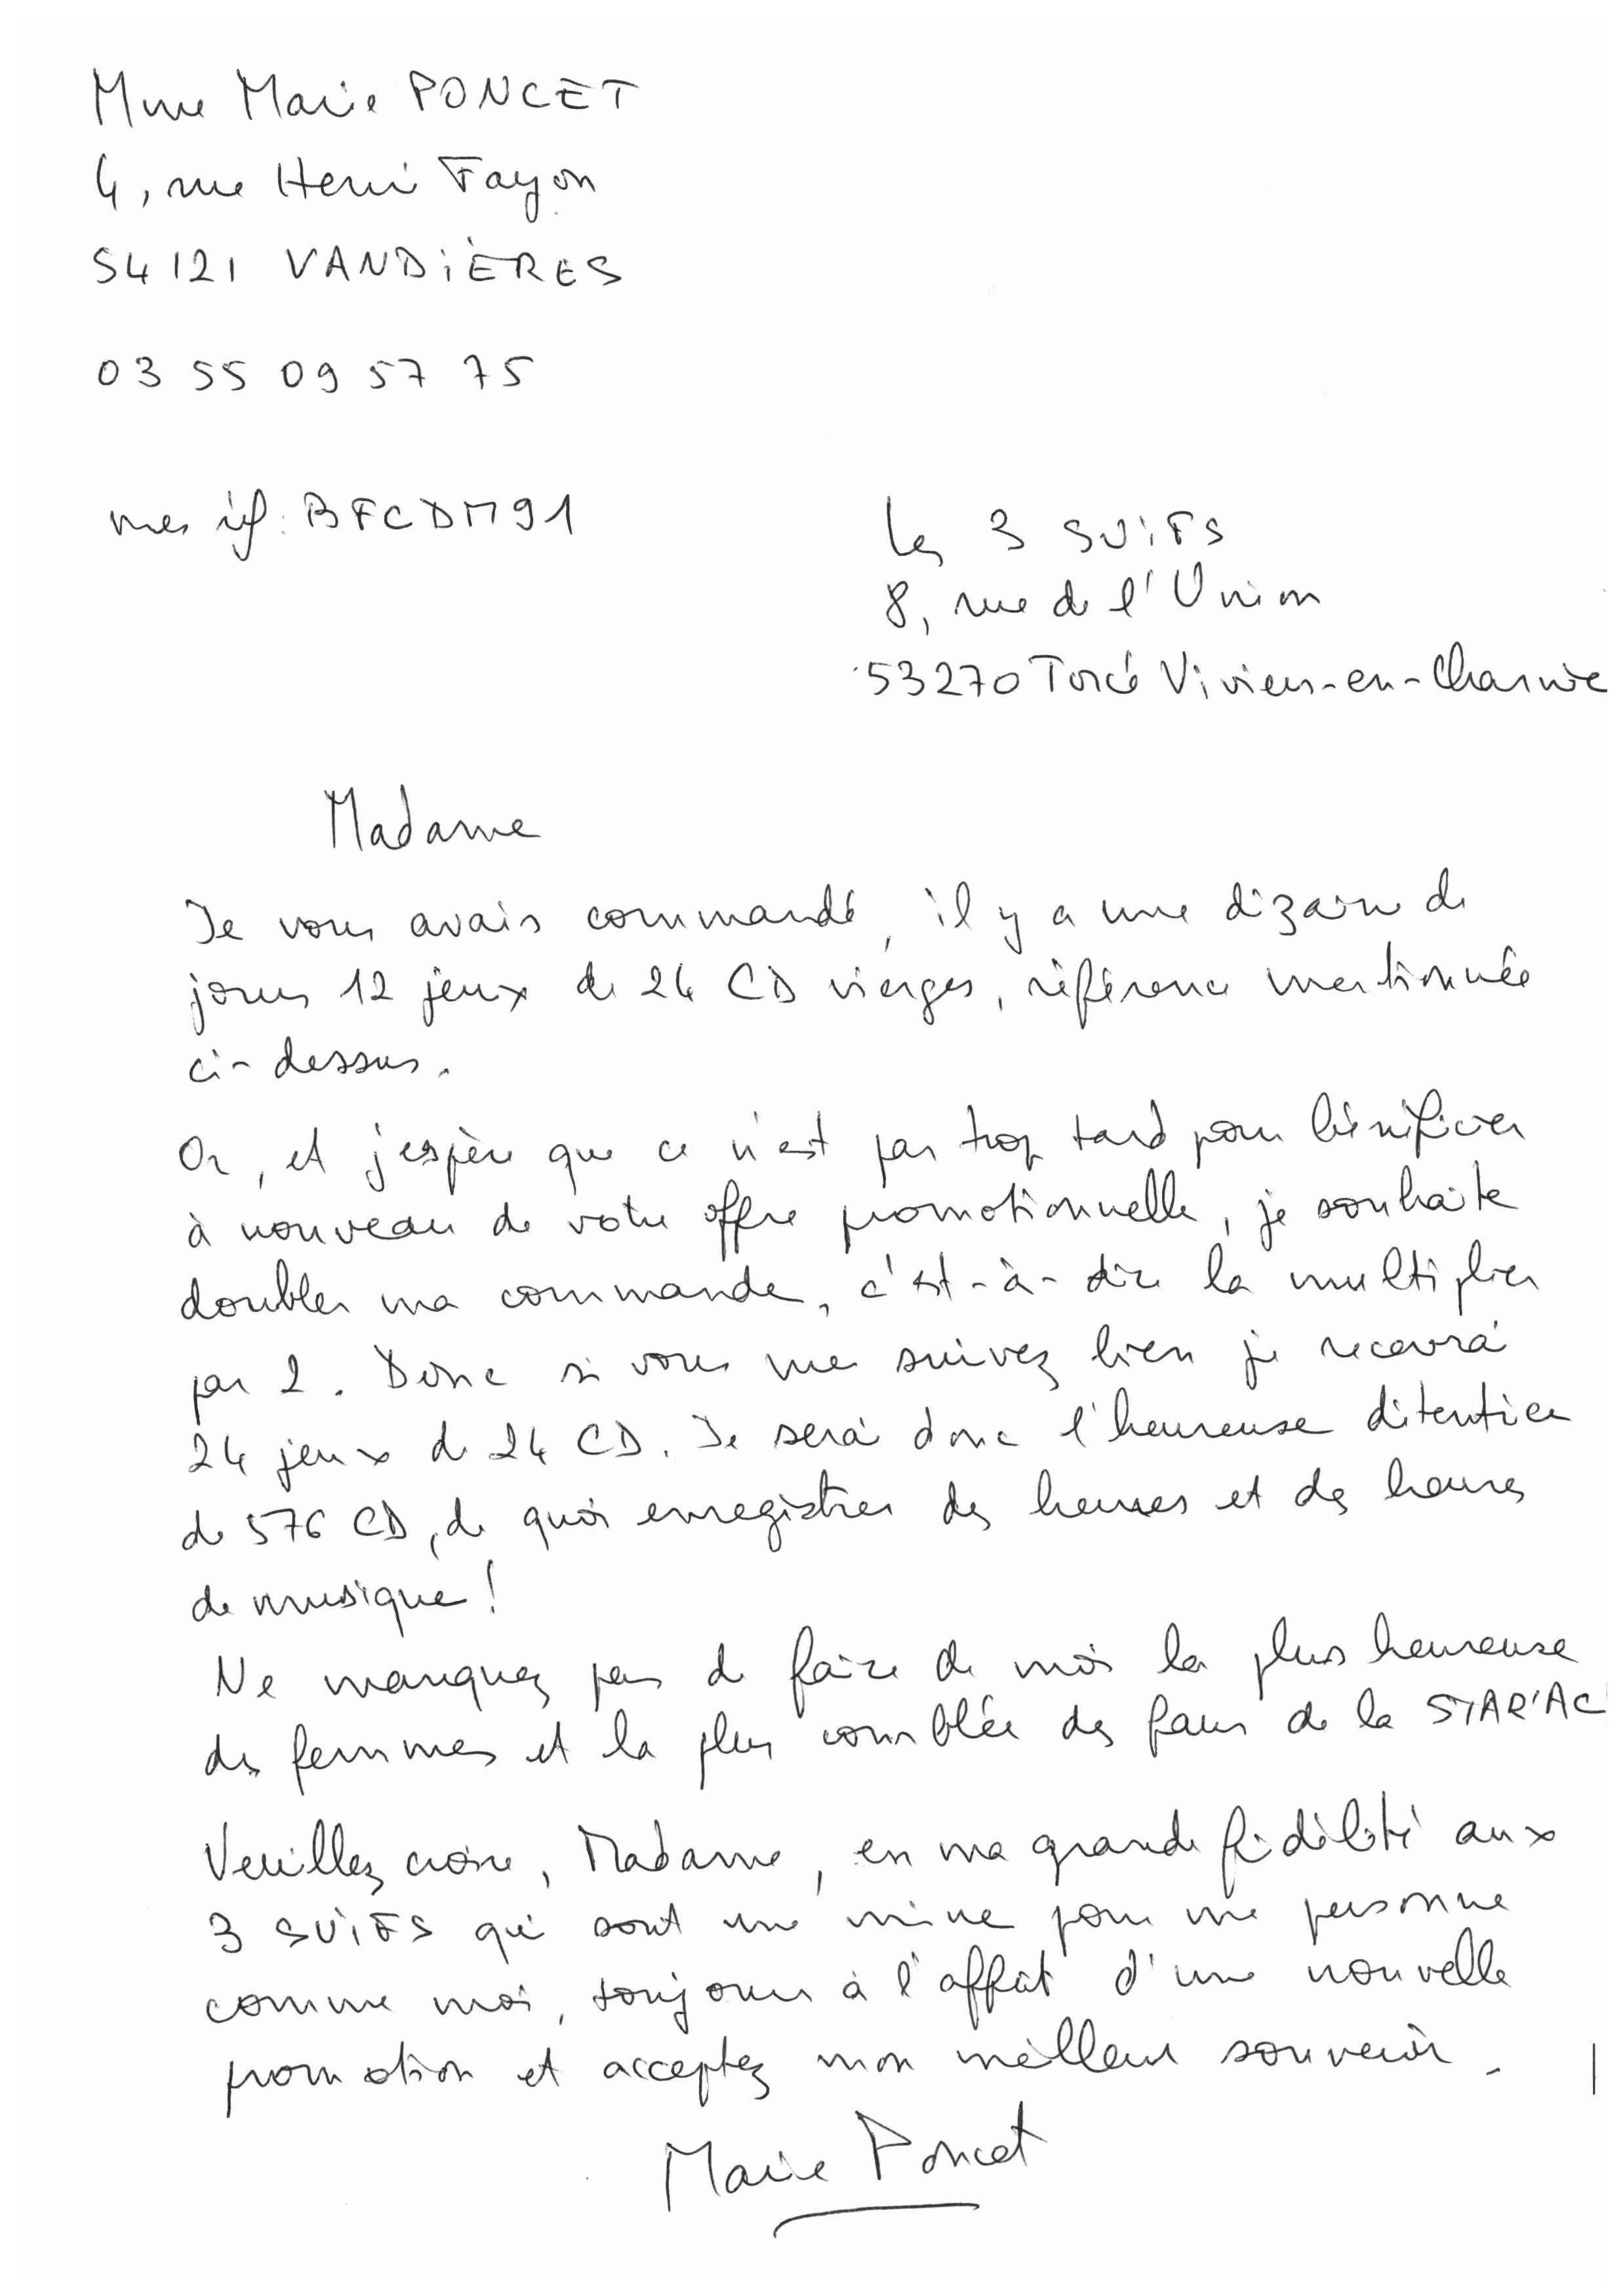 Mme Marie PONCET
4, rue Henri Fayon
54121 VANDIÈRES
03 55 09 57 75
mes réf: BFCDM91
Les 3 SUIFS
8, rue de l'Union
53270 Torcé Viviers-en-Charnie
Madame
Je vous avais commandé, il y a une dizaine de
jours 12 jeux de 24 CD vierges, référence mentionnée
ci-dessus.
Or, et j'espère que ce n'est pas trop tard pour bénéficier
à nouveau de votre offre promotionnelle, je souhaite
doubler ma commande, c'est-à-dire la multiplier
par 2. Donc si vous me suivez bien je recevrai
24 jeux de 24 CD. Je serai donc l'heureuse détentrice
de 576 CD, de quoi enregistrer des heures et des heures
de musique !
Ne manquez pas de faire de moi la plus heureuse
des femmes et la plus comblée des fans de la STAR'AC
Veuillez croire, Madame, en ma grande fidélité aux
3 SUIFS qui sont une mine pour une personne
comme moi, toujours à l'affût d'une nouvelle
promotion et acceptez mon meilleur souvenir.
Marie Poncet